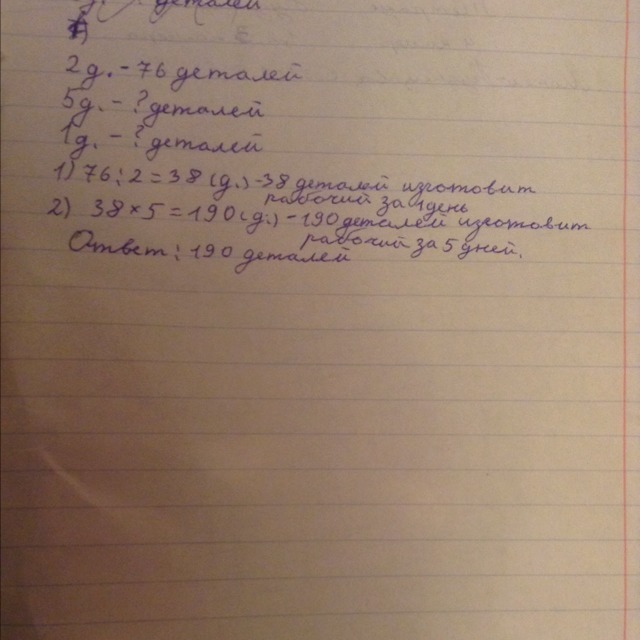 деталей
2д. - 76 деталей
5д. - ? деталей
1д. - ? деталей
1) 76 : 2 = 38 (д.) - 38 деталей изготовит
рабочий за 1 день
2) 38 × 5 = 190 (д.) - 190 деталей изготовит
рабочий за 5 дней.
Ответ: 190 деталей